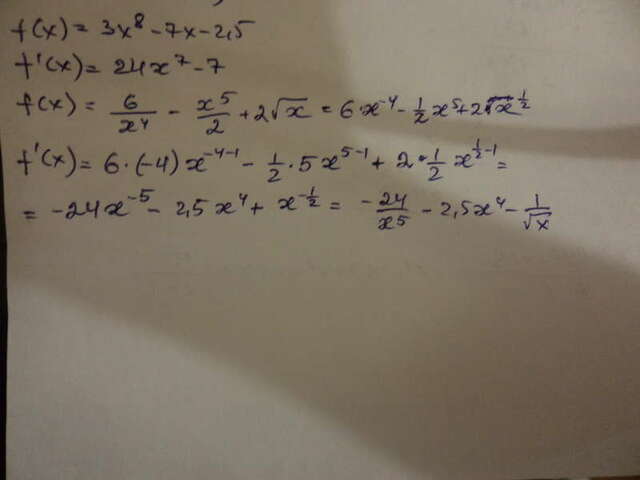 f(x) = 3x⁸ - 7x - 2,5
f'(x) = 24x⁷ - 7
f(x) = 6/x⁴ - x⁵/2 + 2√x = 6·x⁻⁴ - 1/2 x⁵ + 2 x^(1/2)
f'(x) = 6·(-4)x⁻⁴⁻¹ - 1/2·5x⁵⁻¹ + 2·1/2 x^(1/2-1) =
= -24x⁻⁵ - 2,5x⁴ + x^(-1/2) = -24/x⁵ - 2,5x⁴ - 1/√x